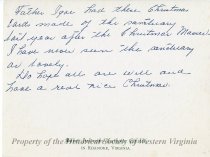 Father Igor had these Christmas
cards made of the sanctuary
last year after the Christmas Mass.
I have never seen the sanctuary
so lovely.
Do hope all are well and
have a real nice Christmas.
Property of the Historical Society of Western Virginia
IN ROANOKE, VIRGINIA.